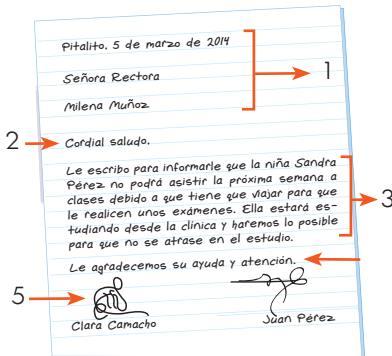 Pitalito. 5 de marzo de 2014
1
Señora Rectora
Milena Muñoz
2
Cordial saludo.
Le escribo para informarle que la niña Sandra
Pérez no podrá asistir la próxima semana a
clases debido a que tiene que viajar para que
le realicen unos exámenes. Ella estará es-
tudiando desde la clínica y haremos lo posible
para que no se atrase en el estudio.
3
Le agradecemos su ayuda y atención.
5
Clara Camacho
Juan Pérez